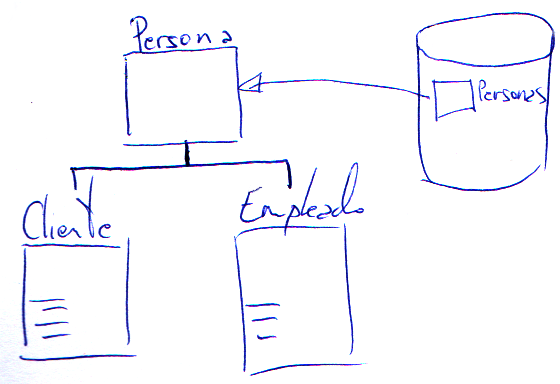 Persona
Personas
Cliente
Empleado